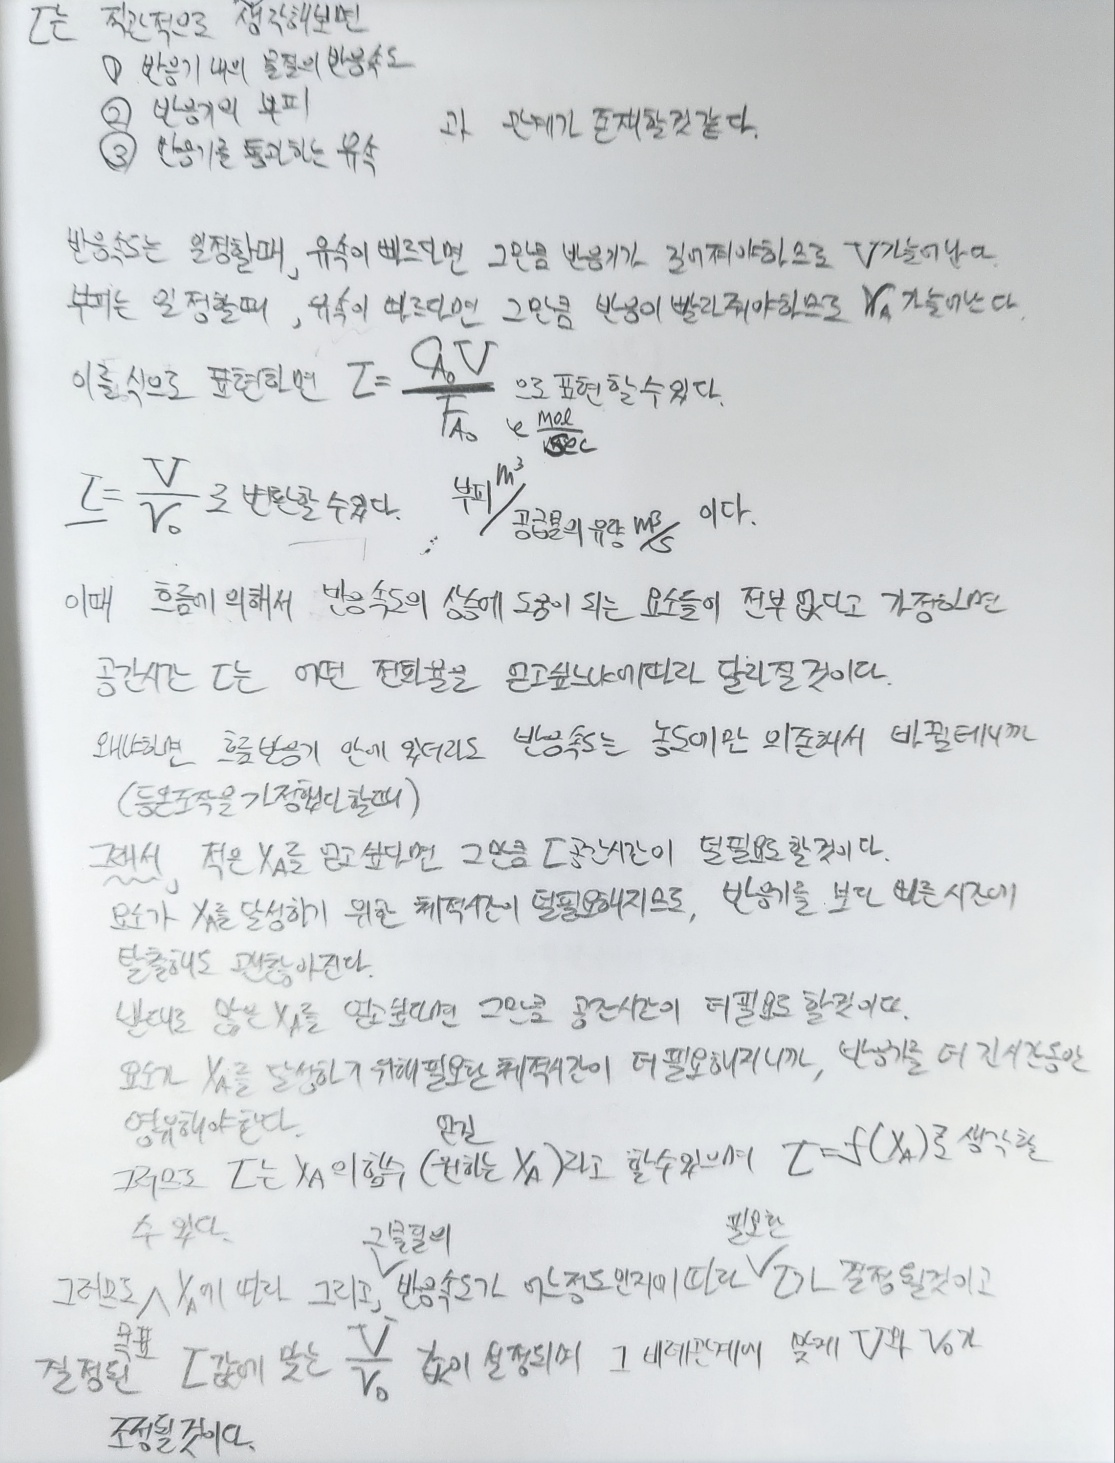 τ는 직관적으로 생각해보면
① 반응기 내의 물질의 반응속도
② 반응기의 부피
③ 반응기를 통과하는 유속 과 관계가 존재할것같다.
반응속도는 일정할때, 유속이 빠르다면 그만큼 반응기가 길어져야하므로 V가늘어난다.
부피는 일정할때, 유속이 빠르다면 그만큼 반응이 빨라져야하므로 r_A가늘어난다.
이를 식으로 표현하면 τ = C_A0 V / F_A0 으로 표현할 수 있다.
mol/sec
τ = V/v0 로 변환할 수 있다. 부피 m³/공급물의 유량 m³/s 이다.
이때 흐름에 의해서 반응속도의 상승에 도움이 되는 요소들이 전부 없다고 가정하면
공간시간 τ는 어떤 전화율을 얻고싶느냐에따라 달라질 것이다.
왜냐하면 흐름반응기 안에 있더라도 반응속도는 농도에만 의존해서 바뀔테니까
(등온조작을 가정했다 할때)
그래서, 적은 X_A를 얻고 싶다면 그만큼 τ 공간시간이 덜필요로 할것이다.
요소가 X_A를 달성하기 위한 체적시간이 덜필요해지므로, 반응기를 보다 빠른 시간에
탈출해도 괜찮아진다.
반대로 많은 X_A를 얻고싶다면 그만큼 공간시간이 더 필요로 할것이다.
요소가 X_A를 달성하기 위해 필요한 체적시간이 더 필요해지니까, 반응기를 더 긴시간동안
영유해야한다.
얻길
그러므로 τ는 X_A의 함수 (원하는 X_A)라고 할 수 있으며 τ = f(X_A)로 생각할
수 있다.
그물질의 필요한
그러므로 ∧ X_A에 따라 그리고, 반응속도가 어느정도인지에 따라 τ가 결정될것이고
목표
결정된 τ값에 맞는 V/v0 값이 설정되며 그 비례관계에 맞게 V와 v0가
조정될것이다.